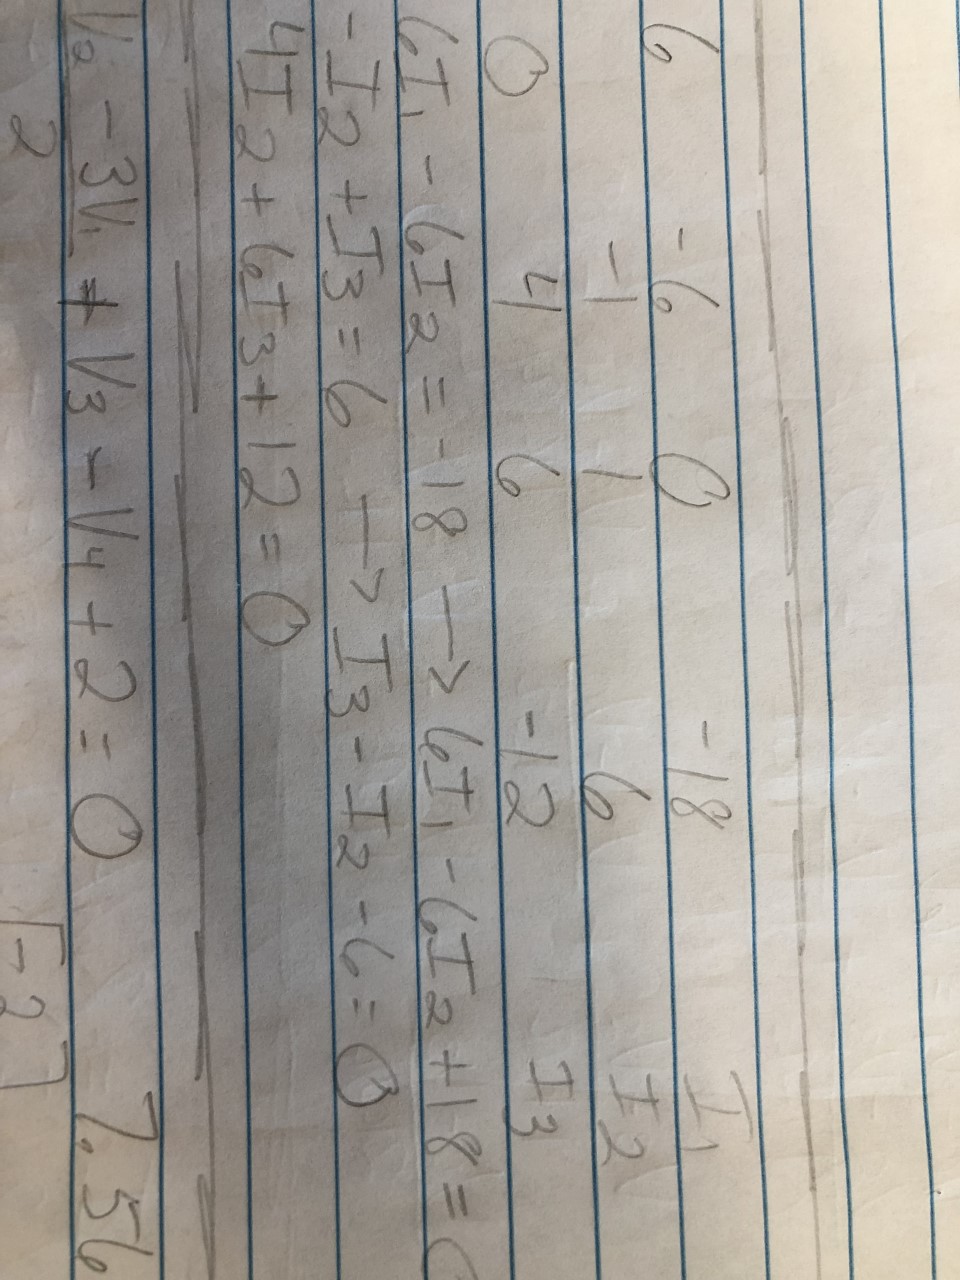 6 -6 0 -18 I1
-1 1 6 I2
0 4 6 -12 I3
6I1 - 6I2 = -18 → 6I1 - 6I2 + 18 =
-I2 + I3 = 6 → I3 - I2 - 6 = 0
4I2 + 6I3 + 12 = 0
V2 - 3V1 + V3 - V4 + 2 = 0 7.56
2